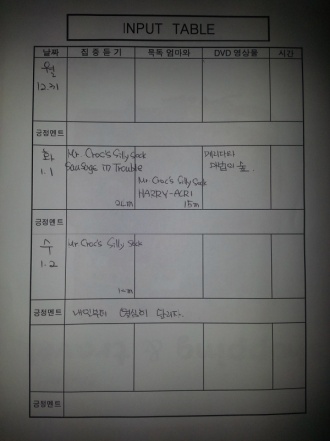 INPUT TABLE
날짜 집중듣기 묵독 엄마와 DVD 영상물 시간
월
12.31
긍정멘트
화 Mr Croc's Silly Sock
1.1 Sausage in Trouble
Mr Croc's Silly Sock
HARRY-ACRI
15m
긍정멘트
수 Mr Croc's Silly Sock
1.2
긍정멘트 내일부터 열심히
긍정멘트